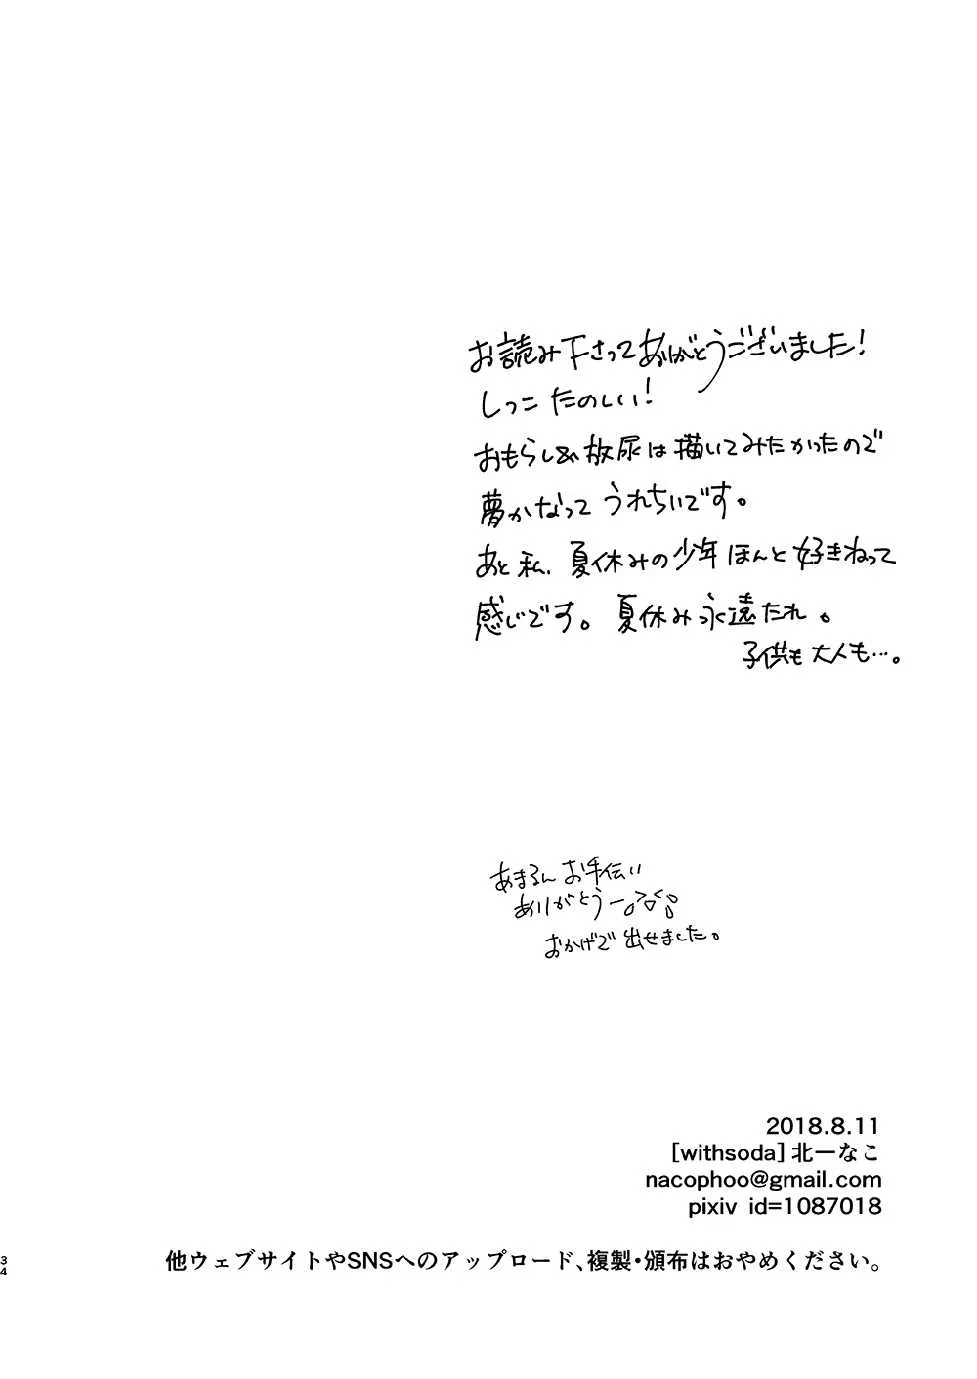 お読み下さってありがとうございました!
しっこ たのしい!
おもらし&放尿は描いてみたかったので
夢かなって うれちいです。
あと私、夏休みの少年ほんと好きねって
感じです。夏休み永遠たれ。
子供も大人も…。
あまるん お手伝い
ありがとうー
おかげで出せました。
2018.8.11
[withsoda]北一なこ
nacophoo@gmail.com
pixiv id=1087018
他ウェブサイトやSNSへのアップロード、複製・頒布はおやめください。
34